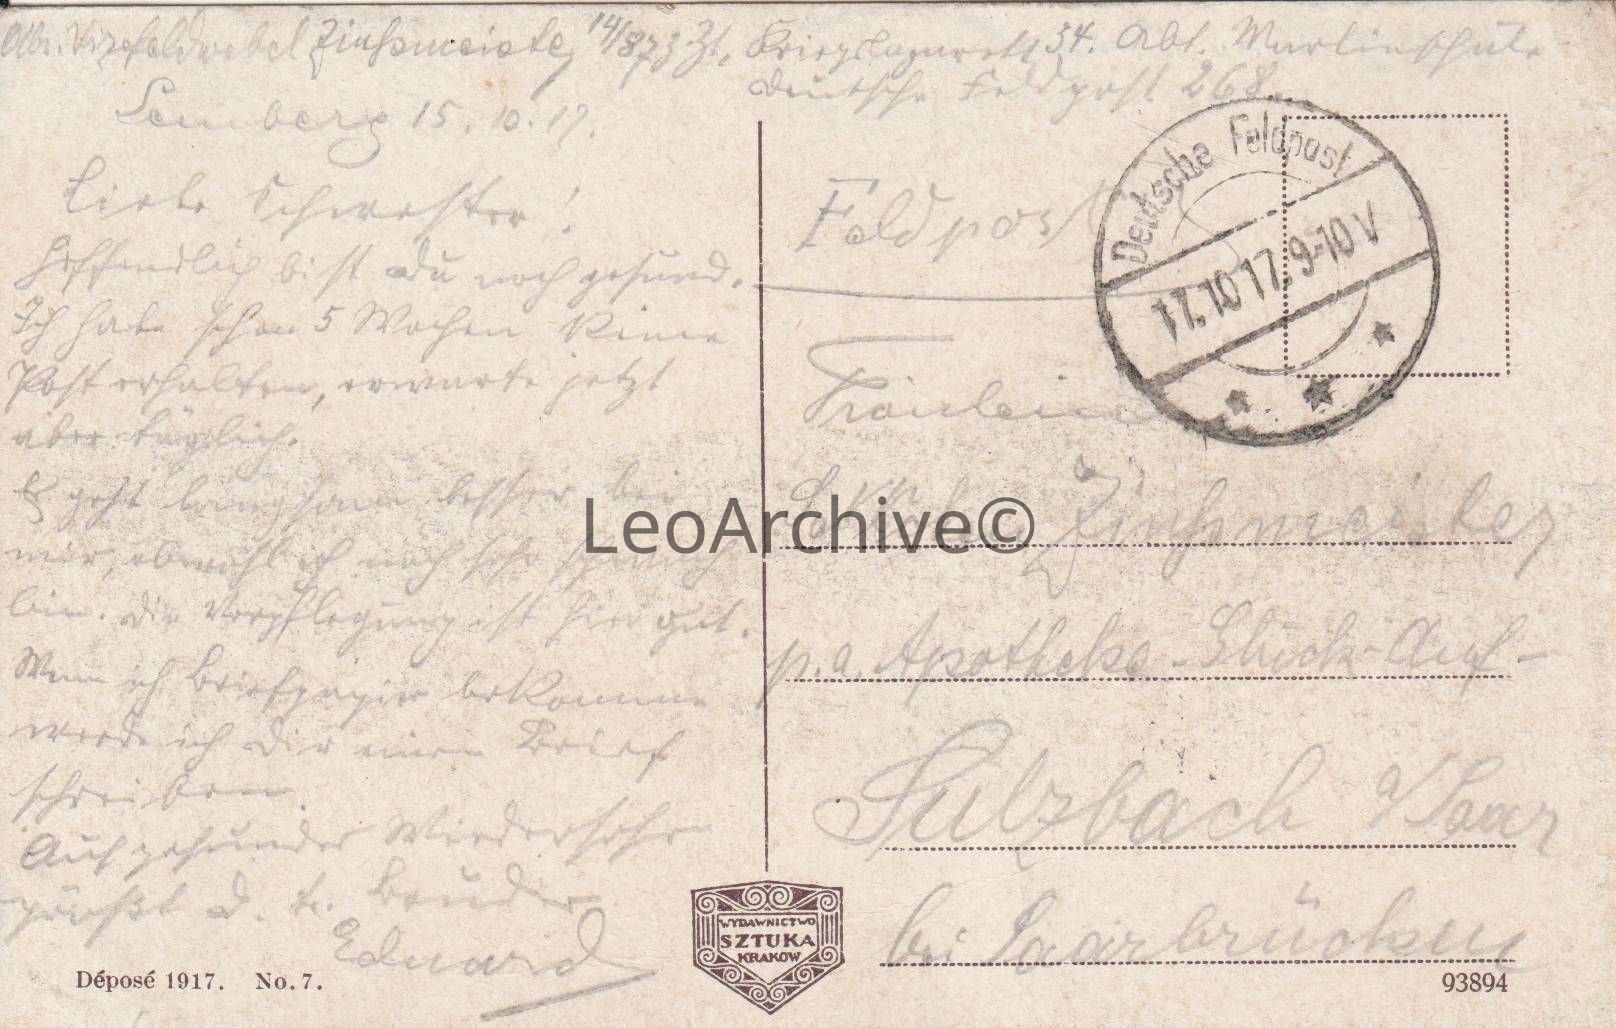 Abs. Vizefeldwebel Zinßmeister, 14/873 Zt. Kriegslazarett 34. Abt. Martinschule
Deutsche Feldpost 268.
Lemberg 15.10.17.
Liebe Schwester!
Hoffendlich bist Du noch gesund.
Ich habe schon 5 Wochen keine
Post erhalten, erwarte jetzt
aber täglich.
Es geht langsam besser bei
mir, obwohl ich noch sehr schwach
bin. Die Verpflegung ist hier gut.
Wenn ich Briefpapier bekomme
werde ich Dir einen Brief
schreiben.
Auf gesundes Wiedersehn
grüßt d. tr. Bruder
Eduard
Déposé 1917. No. 7.
WYDAWNICTWO
SZTUKA
KRAKÓW
Feldpost
Deutsche Feldpost
17.10 17. 9-10 V
Fräulein
Zinßmeister
p.a. Apotheke Glück-Auf
Sulzbach a/Saar
bei Saarbrücken
93894
LeoArchive©